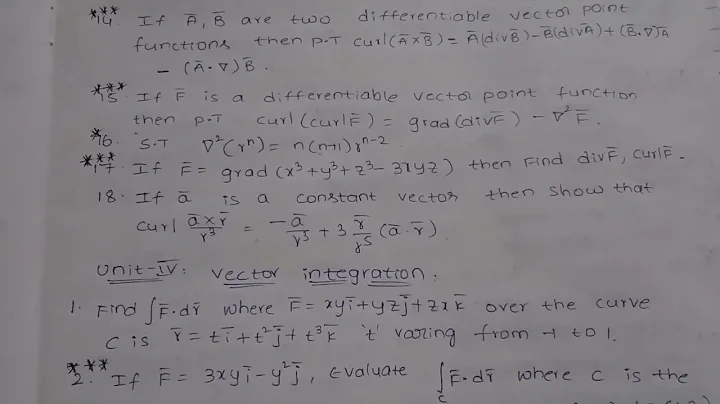 ***14. If Ā, B̄ are two differentiable vector point
functions then P.T curl(Ā×B̄) = Ā(div B̄) - B̄(div Ā) + (B̄.∇)Ā
- (Ā.∇)B̄.
***15. If F̄ is a differentiable vector point function
then P.T curl(curl F̄) = grad(div F̄) - ∇²F̄.
*16. S.T ∇²(rⁿ) = n(n+1)rⁿ⁻²
***17. If F̄ = grad(x³+y³+z³-3xyz) then Find div F̄, curl F̄.
18. If ā is a constant vector then show that
curl ā×r̄/r³ = -ā/r³ + 3 r̄/r⁵ (ā.r̄)
Unit-IV: vector integration.
1. Find ∫F̄.dr̄ where F̄ = xyī+yzj̄+zxk̄ over the curve
C is r̄ = tī+t²j̄+t³k̄ 't' varing from -1 to 1.
***2. If F̄ = 3xyī-y²j̄, Evaluate ∫_C F̄.dr̄ where C is the